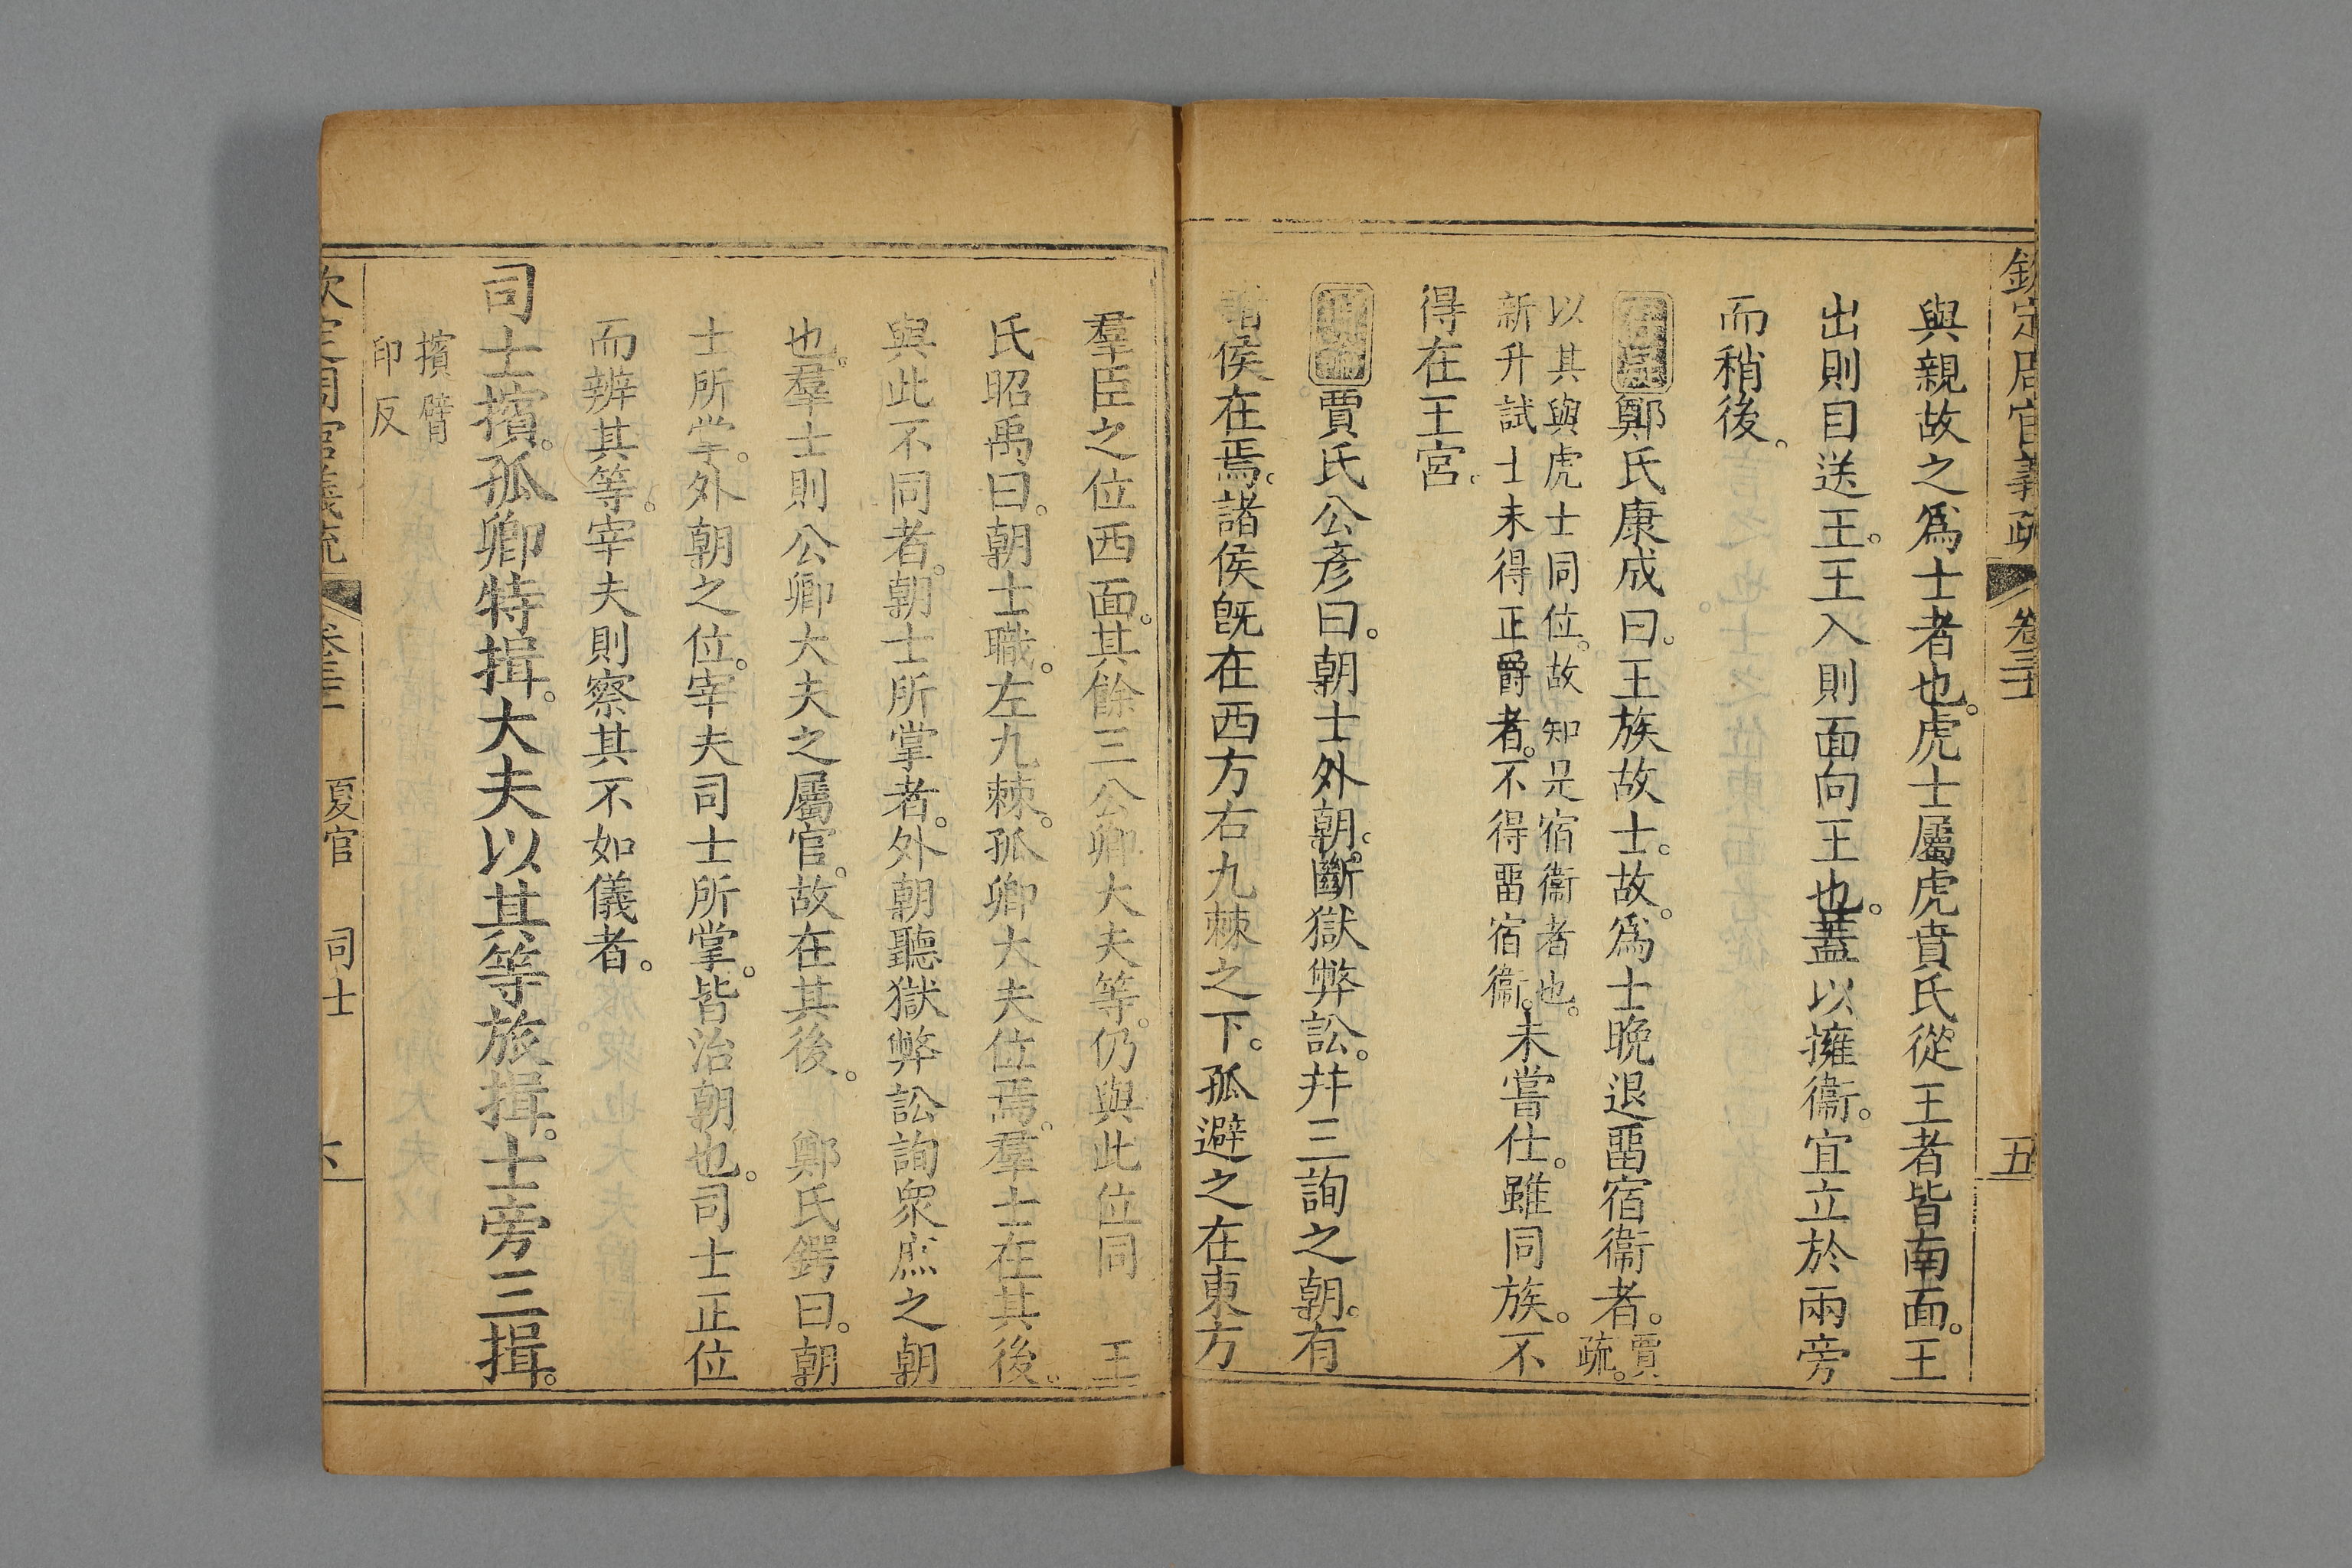 欽定周官義疏 卷三十 五
與親故之爲士者也。虎士屬虎賁氏從王者皆南面。王
出則目送王。王入則面向王也。蓋以擁衞。宜立於兩旁
而稍後。
存疑鄭氏康成曰。王族故士。故。爲士晚退畱宿衞者。賈疏。
以其與虎士同位。故知是宿衞者也。
新升試士未得正爵者。不得畱宿衞。未嘗仕。雖同族。不
得在王宮。
通論賈氏公彥曰。朝士外朝。斷獄弊訟。并三詢之朝。有
諸侯在焉。諸侯旣在西方右九棘之下。孤避之在東方
羣臣之位西面。其餘三公卿大夫等。仍與此位同 王
氏昭禹曰。朝士職。左九棘。孤卿大夫位焉。羣士在其後。
與此不同者。朝士所掌者。外朝聽獄弊訟詢衆庶之朝
也。羣士則公卿大夫之屬官。故在其後。 鄭氏鍔曰。朝
士所掌。外朝之位。宰夫司士所掌。皆治朝也。司士正位
而辨其等。宰夫則察其不如儀者。
司士擯。孤卿特揖。大夫以其等旅揖。士旁三揖。
擯臂
印反
欽定周官義疏 夏官 司士